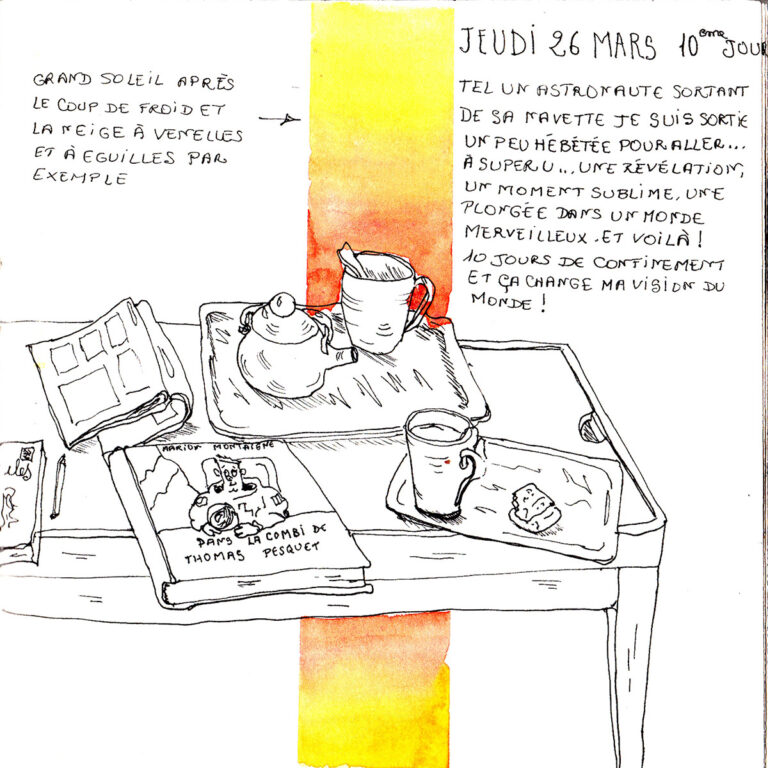 JEUDI 26 MARS 10ème JOUR
GRAND SOLEIL APRÈS
LE COUP DE FROID ET
LA NEIGE À VENELLES
ET À EGUILLES PAR
EXEMPLE
TEL UN ASTRONAUTE SORTANT
DE SA NAVETTE JE SUIS SORTIE
UN PEU HÉBÉTÉE POUR ALLER...
À SUPER U... UNE RÉVÉLATION,
UN MOMENT SUBLIME, UNE
PLONGÉE DANS UN MONDE
MERVEILLEUX. ET VOILÀ !
10 JOURS DE CONFINEMENT
ET ÇA CHANGE MA VISION DU
MONDE !
MARION MONTAIGNE
DANS LA COMBI DE
THOMAS PESQUET